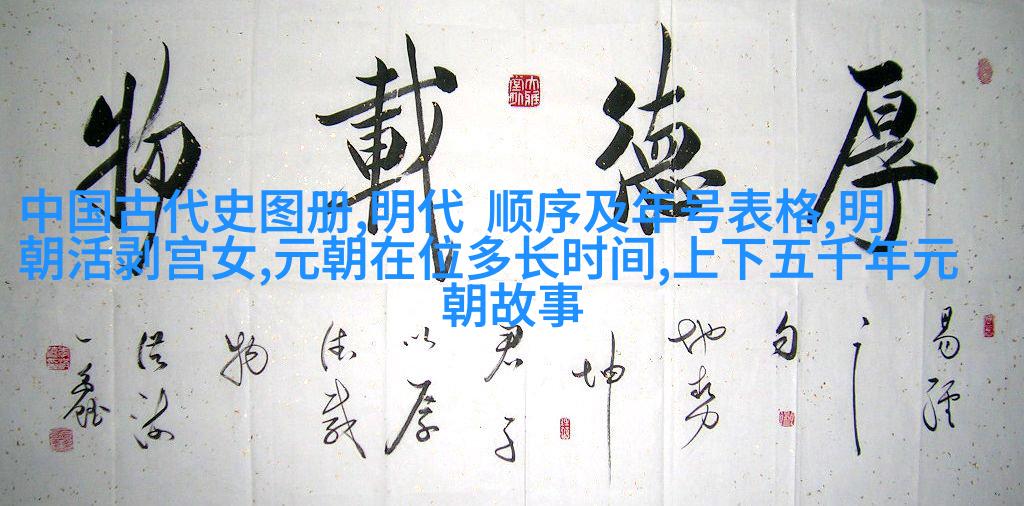 厚德載物
中国古代史图册,明代 顺序及年号表格,明
朝活剥宫女,元朝在位多长时间,上下五千年元
朝故事
易經
之
句
地势
坤
君子
以厚
德载
物